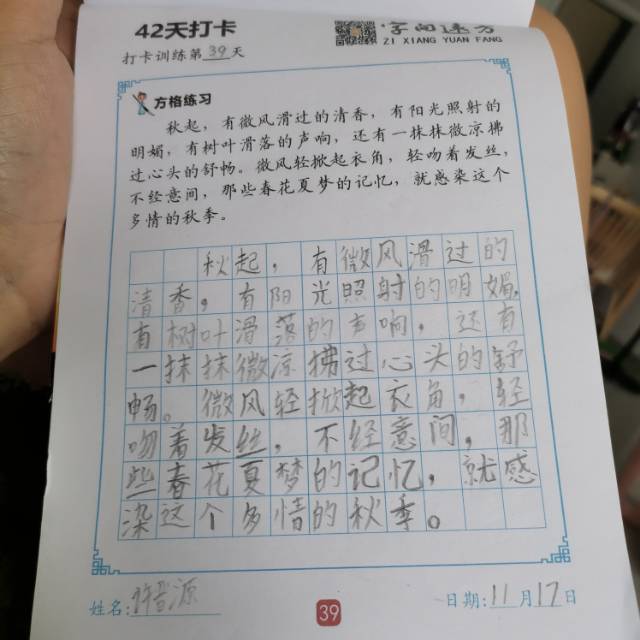 42天打卡
ZI XIANG YUAN FANG
打卡训练第39天
方格练习
秋起，有微风滑过的清香，有阳光照射的
明媚，有树叶滑落的声响，还有一抹抹微凉拂
过心头的舒畅。微风轻掀起衣角，轻吻着发丝，
不经意间，那些春花夏梦的记忆，就感染这个
多情的秋季。
秋起，有微风滑过的
清香，有阳光照射的明媚，
有树叶滑落的声响，还有
一抹抹微凉拂过心头的舒
畅。微风轻掀起衣角，轻
吻着发丝，不经意间，那
些春花夏梦的记忆，就感
染这个多情的秋季。
姓名:许晋源
39
日期:11月17日